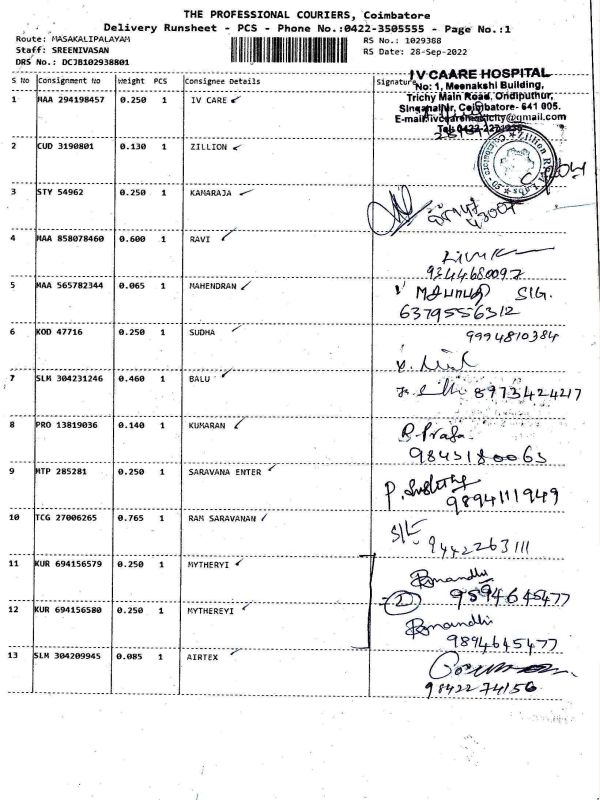 THE PROFESSIONAL COURIERS, Coimbatore
Delivery Runsheet - PCS - Phone No.:0422-3505555 - Page No.:1
Route: MASAKALIPALAYAM RS No.: 1029388
Staff: SREENIVASAN RS Date: 28-Sep-2022
DRS No.: DCJB102938801
S No Consignment No Weight PCS Consignee Details Signature
IV CAARE HOSPITAL
No: 1, Meenakshi Building,
Trichy Main Road, Ondiputhur,
Singanallur, Coimbatore- 641 005.
1 MAA 294198457 0.250 1 IV CARE
2 CUD 3190801 0.130 1 ZILLION
3 STY 54962 0.250 1 KAMARAJA
4 MAA 858078460 0.600 1 RAVI
9344680097
5 MAA 565782344 0.065 1 MAHENDRAN
SIG.
6379556312
6 KOD 47716 0.250 1 SUDHA
9994810384
7 SLM 304231246 0.460 1 BALU
8973424217
8 PRO 13819036 0.140 1 KUMARAN
9845180065
9 MTP 285281 0.250 1 SARAVANA ENTER
9894111949
10 TCG 27006265 0.765 1 RAM SARAVANAN
9442263111
11 KUR 694156579 0.250 1 MYTHERYI
9594645477
2
12 KUR 694156580 0.250 1 MYTHEREYI
9894645477
13 SLM 304209945 0.085 1 AIRTEX
9842274156